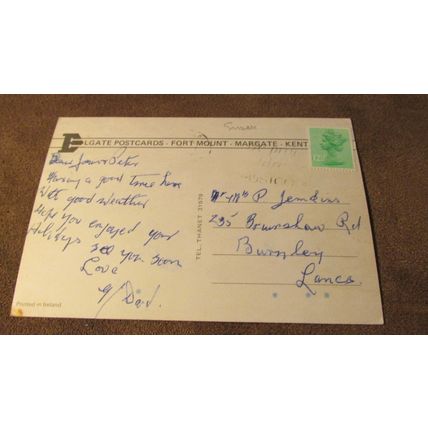 Sussex
ELGATE POSTCARDS - FORT MOUNT - MARGATE - KENT
Dear Joan & Peter
Having a good time here
With good weather
Hope you enjoyed your
Holidays see you soon
Love
Dad.
Mr & Mrs P. Jenkins
235 Brunshaw Rd
Burnley
Lancs.
TEL. THANET 31570
Printed in Ireland